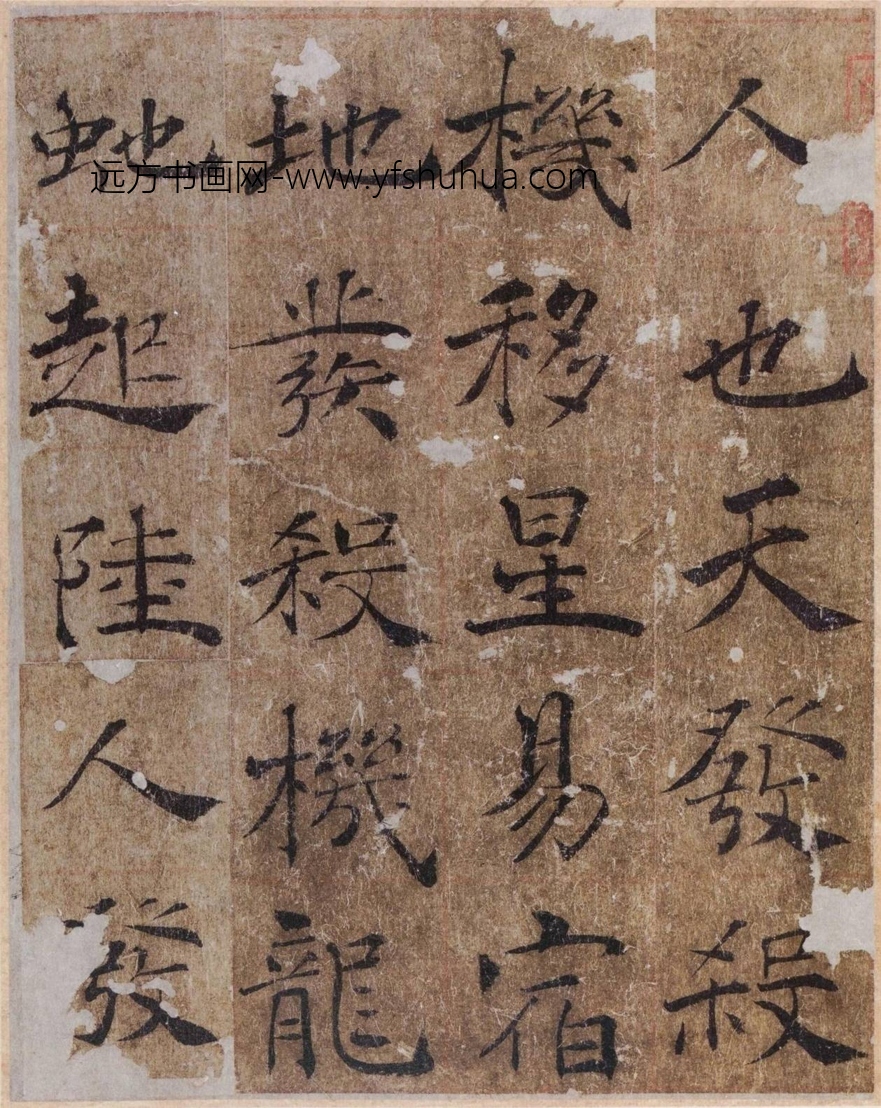 人也天發殺
機移星易宿
地發殺機龍
虵起陸人發
远方书画网-www.yfshuhua.com